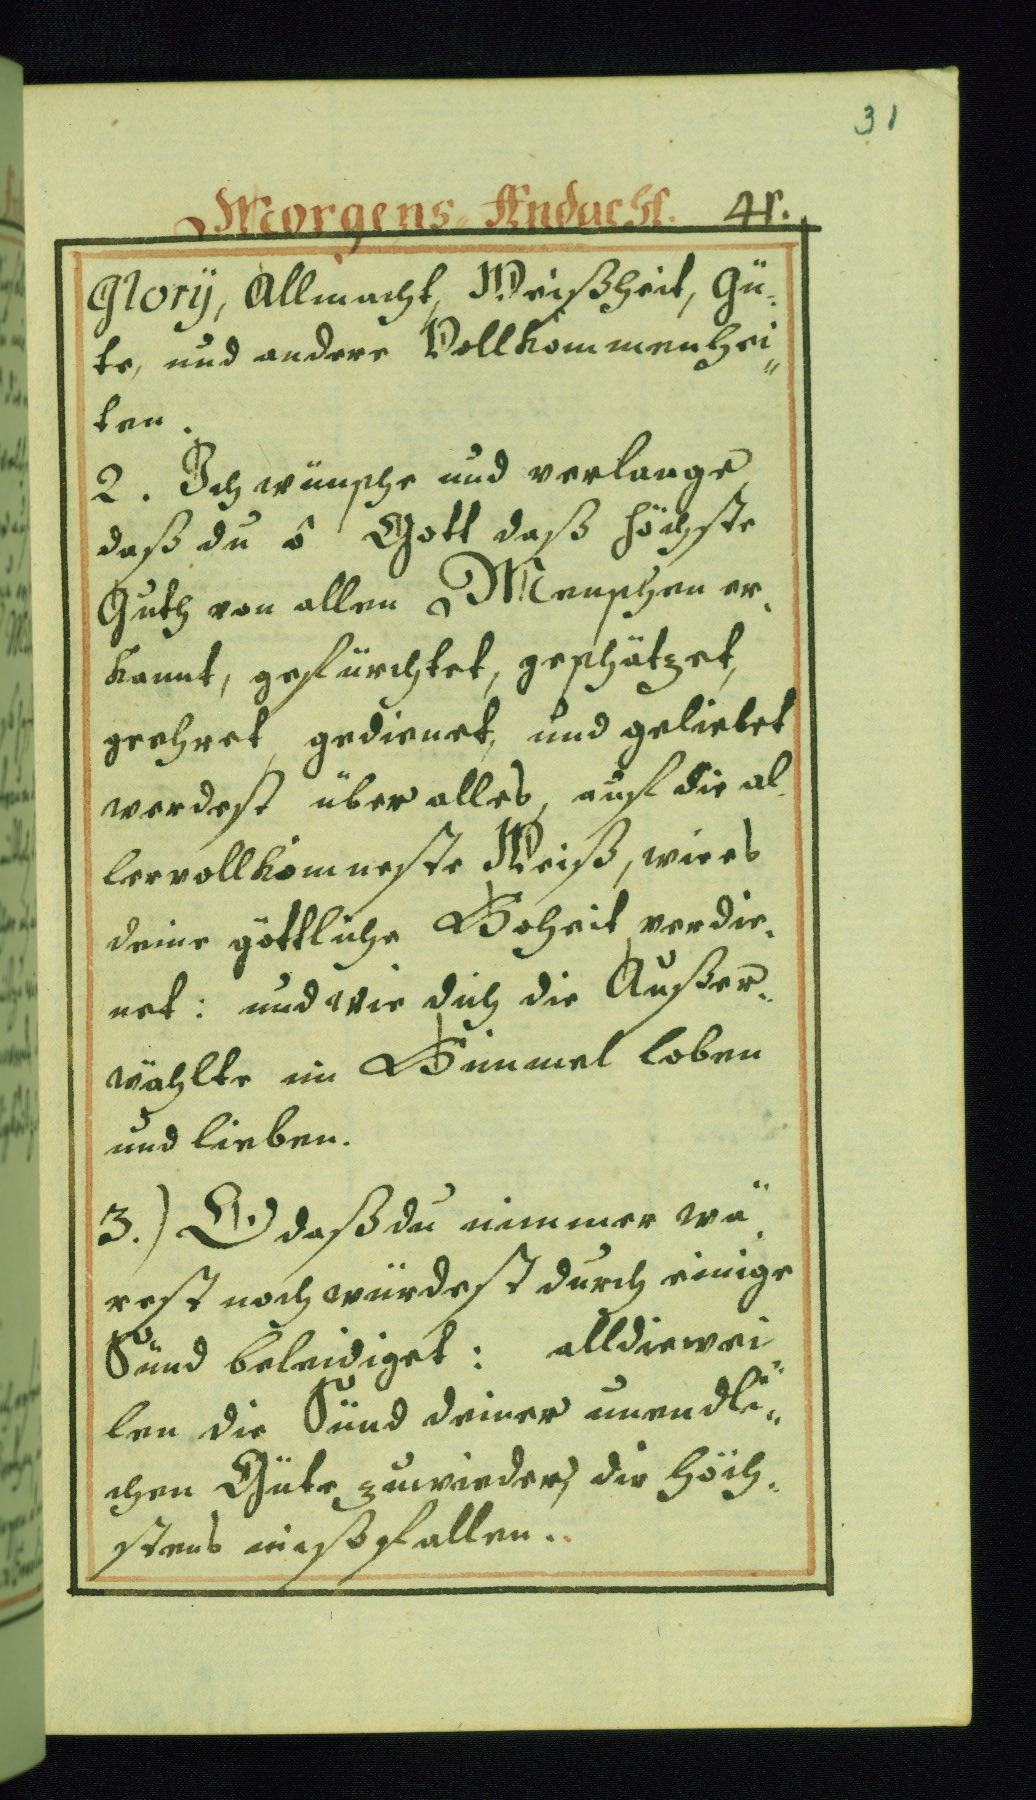 31
Morgens-Andacht. 41.
Glorÿ, Allmacht, Weißheit, Gü-
te, und andere Vollkommenhei-
ten.
2. Ich wünsche und verlange
daß du ô Gott daß höchste
Guth von allen Menschen er-
kannt, gefürchtet, geschätzet,
geehret, gedienet, und geliebet
werdest über alles, auf die al-
lervollkomneste Weiß, wie es
deine göttliche Hoheit verdie-
net: und wie dich die Außer-
wählte im Himmel loben
und lieben.
3.) O daß du nimmer wä-
rest noch würdest durch einige
Sünd beleidiget: alldiewei-
len die Sünd deiner unendli-
chen Güte zuwieder, dir höch-
stens mißfallen.